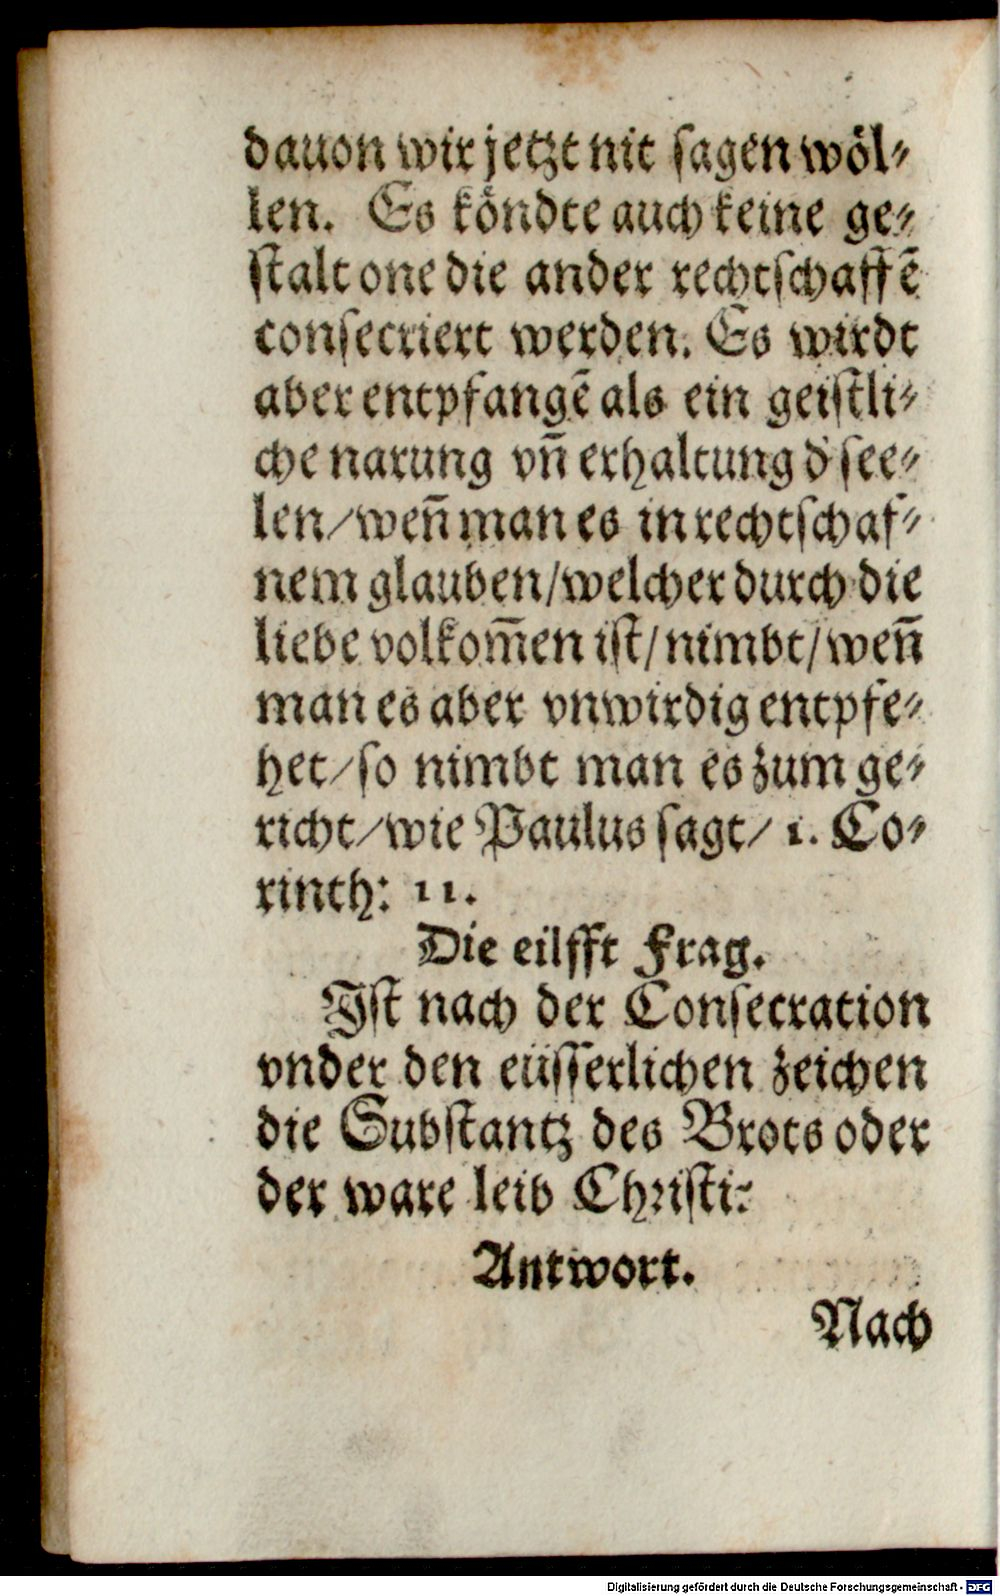 dauon wir jetzt nit sagen wöl-
len. Es köndte auch keine ge-
stalt one die ander rechtschaffē
consecriert werden. Es wirdt
aber entpfangē als ein geistli-
che narung vñ erhaltung d' see-
len/ weñ man es in rechtschaf-
nem glauben/ welcher durch die
liebe volkom̃en ist/ nimbt/ weñ
man es aber vnwirdig entpfe-
het/ so nimbt man es zum ge-
richt/ wie Paulus sagt/ 1. Co-
rinth: 11.
Die eilfft Frag.
Ist nach der Consecration
vnder den eüsserlichen zeichen
die Substantz des Brots oder
der ware leib Christi?
Antwort.
Nach
Digitalisierung gefördert durch die Deutsche Forschungsgemeinschaft - DFG